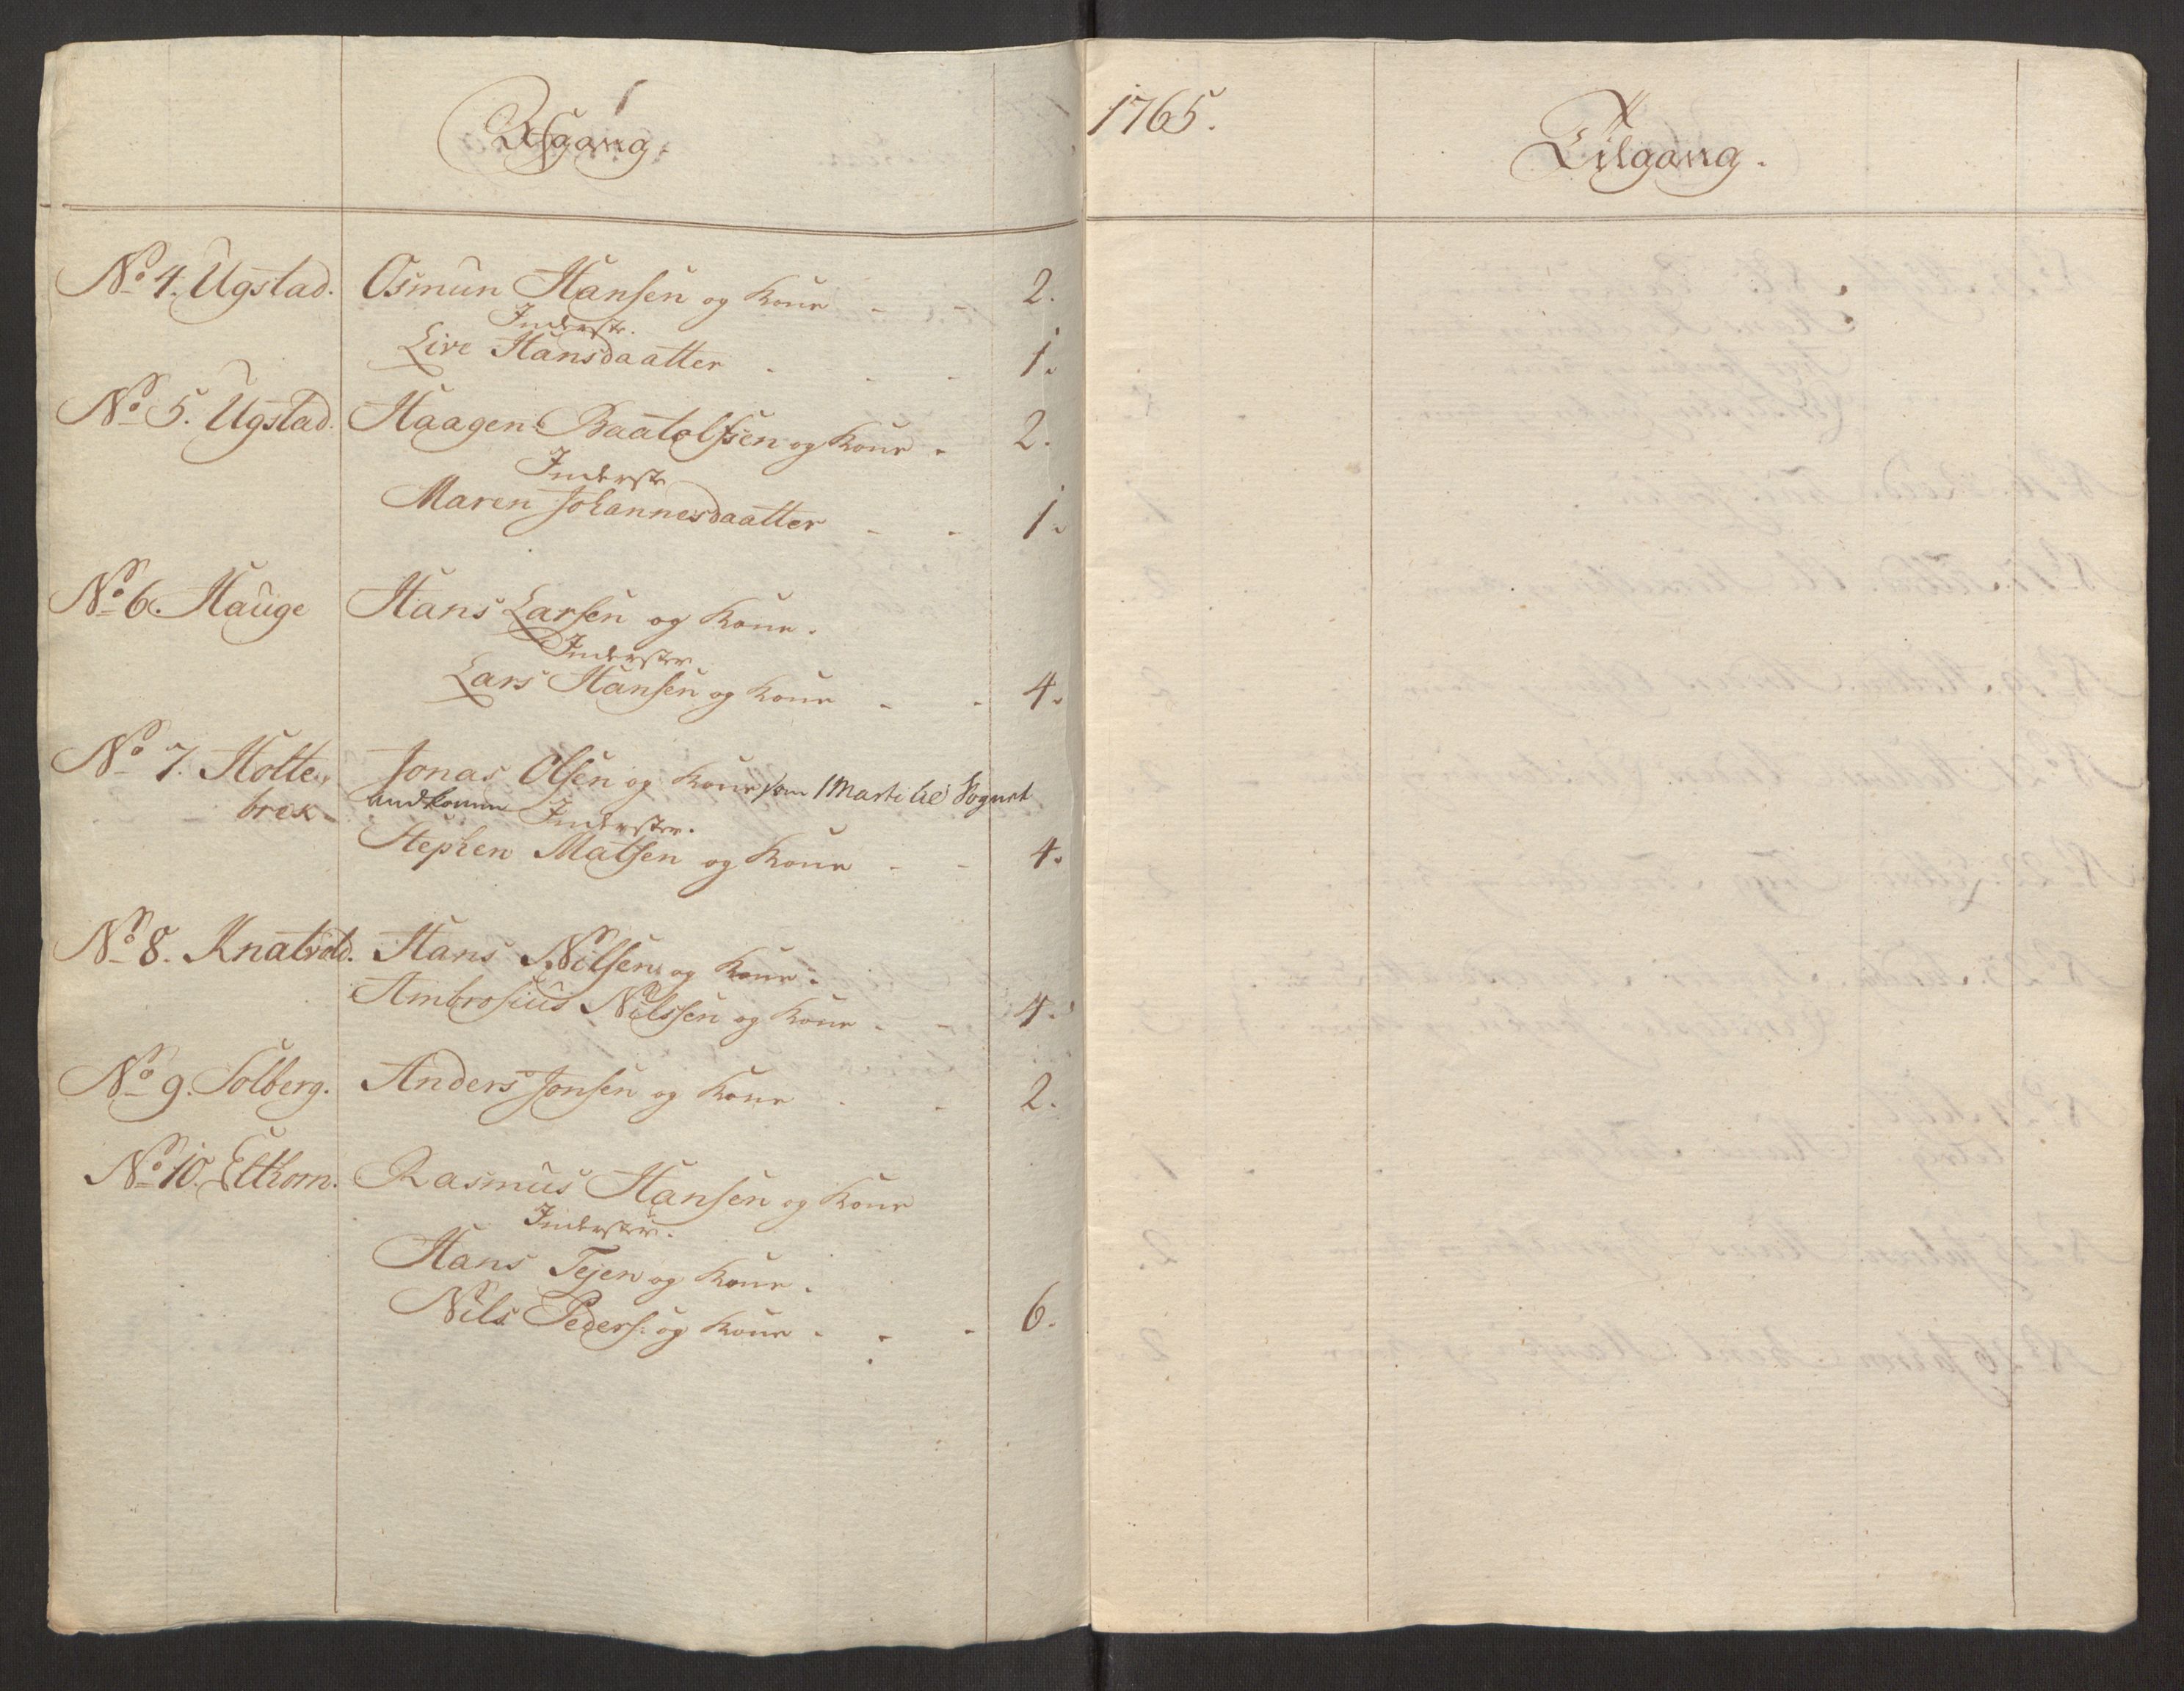 Afgang.
No 4. Ugstad. Osmun Hansen og Kone - - 2.
Inderste.
Live Hansdaatter - - - 1.
No 5. Ugstad. Haagen Baatolfsen og Kone - 2.
Inderste
Maren Johannesdaatter - - 1.
No 6. Hauge Hans Larsen og Kone.
Inderster
Lars Hansen og Kone - - 4.
No 7. Holte, Jonas Olsen og Kone som 1 Marti til Sognet
brek. indkomne Inderster.
Stephen Matsen og Kone - - 4.
No 8. Knatvold. Hans Nilsen og Kone.
Ambrosius Nilssen og Kone - - 4.
No 9. Solberg. Anders Jonsen og Kone - - 2.
No 10. Elthorn. Rasmus Hansen og Kone
Inderster.
Hans Tejen og Kone.
Nils Peders. og Kone - - - 6.
1765.
Tilgang.